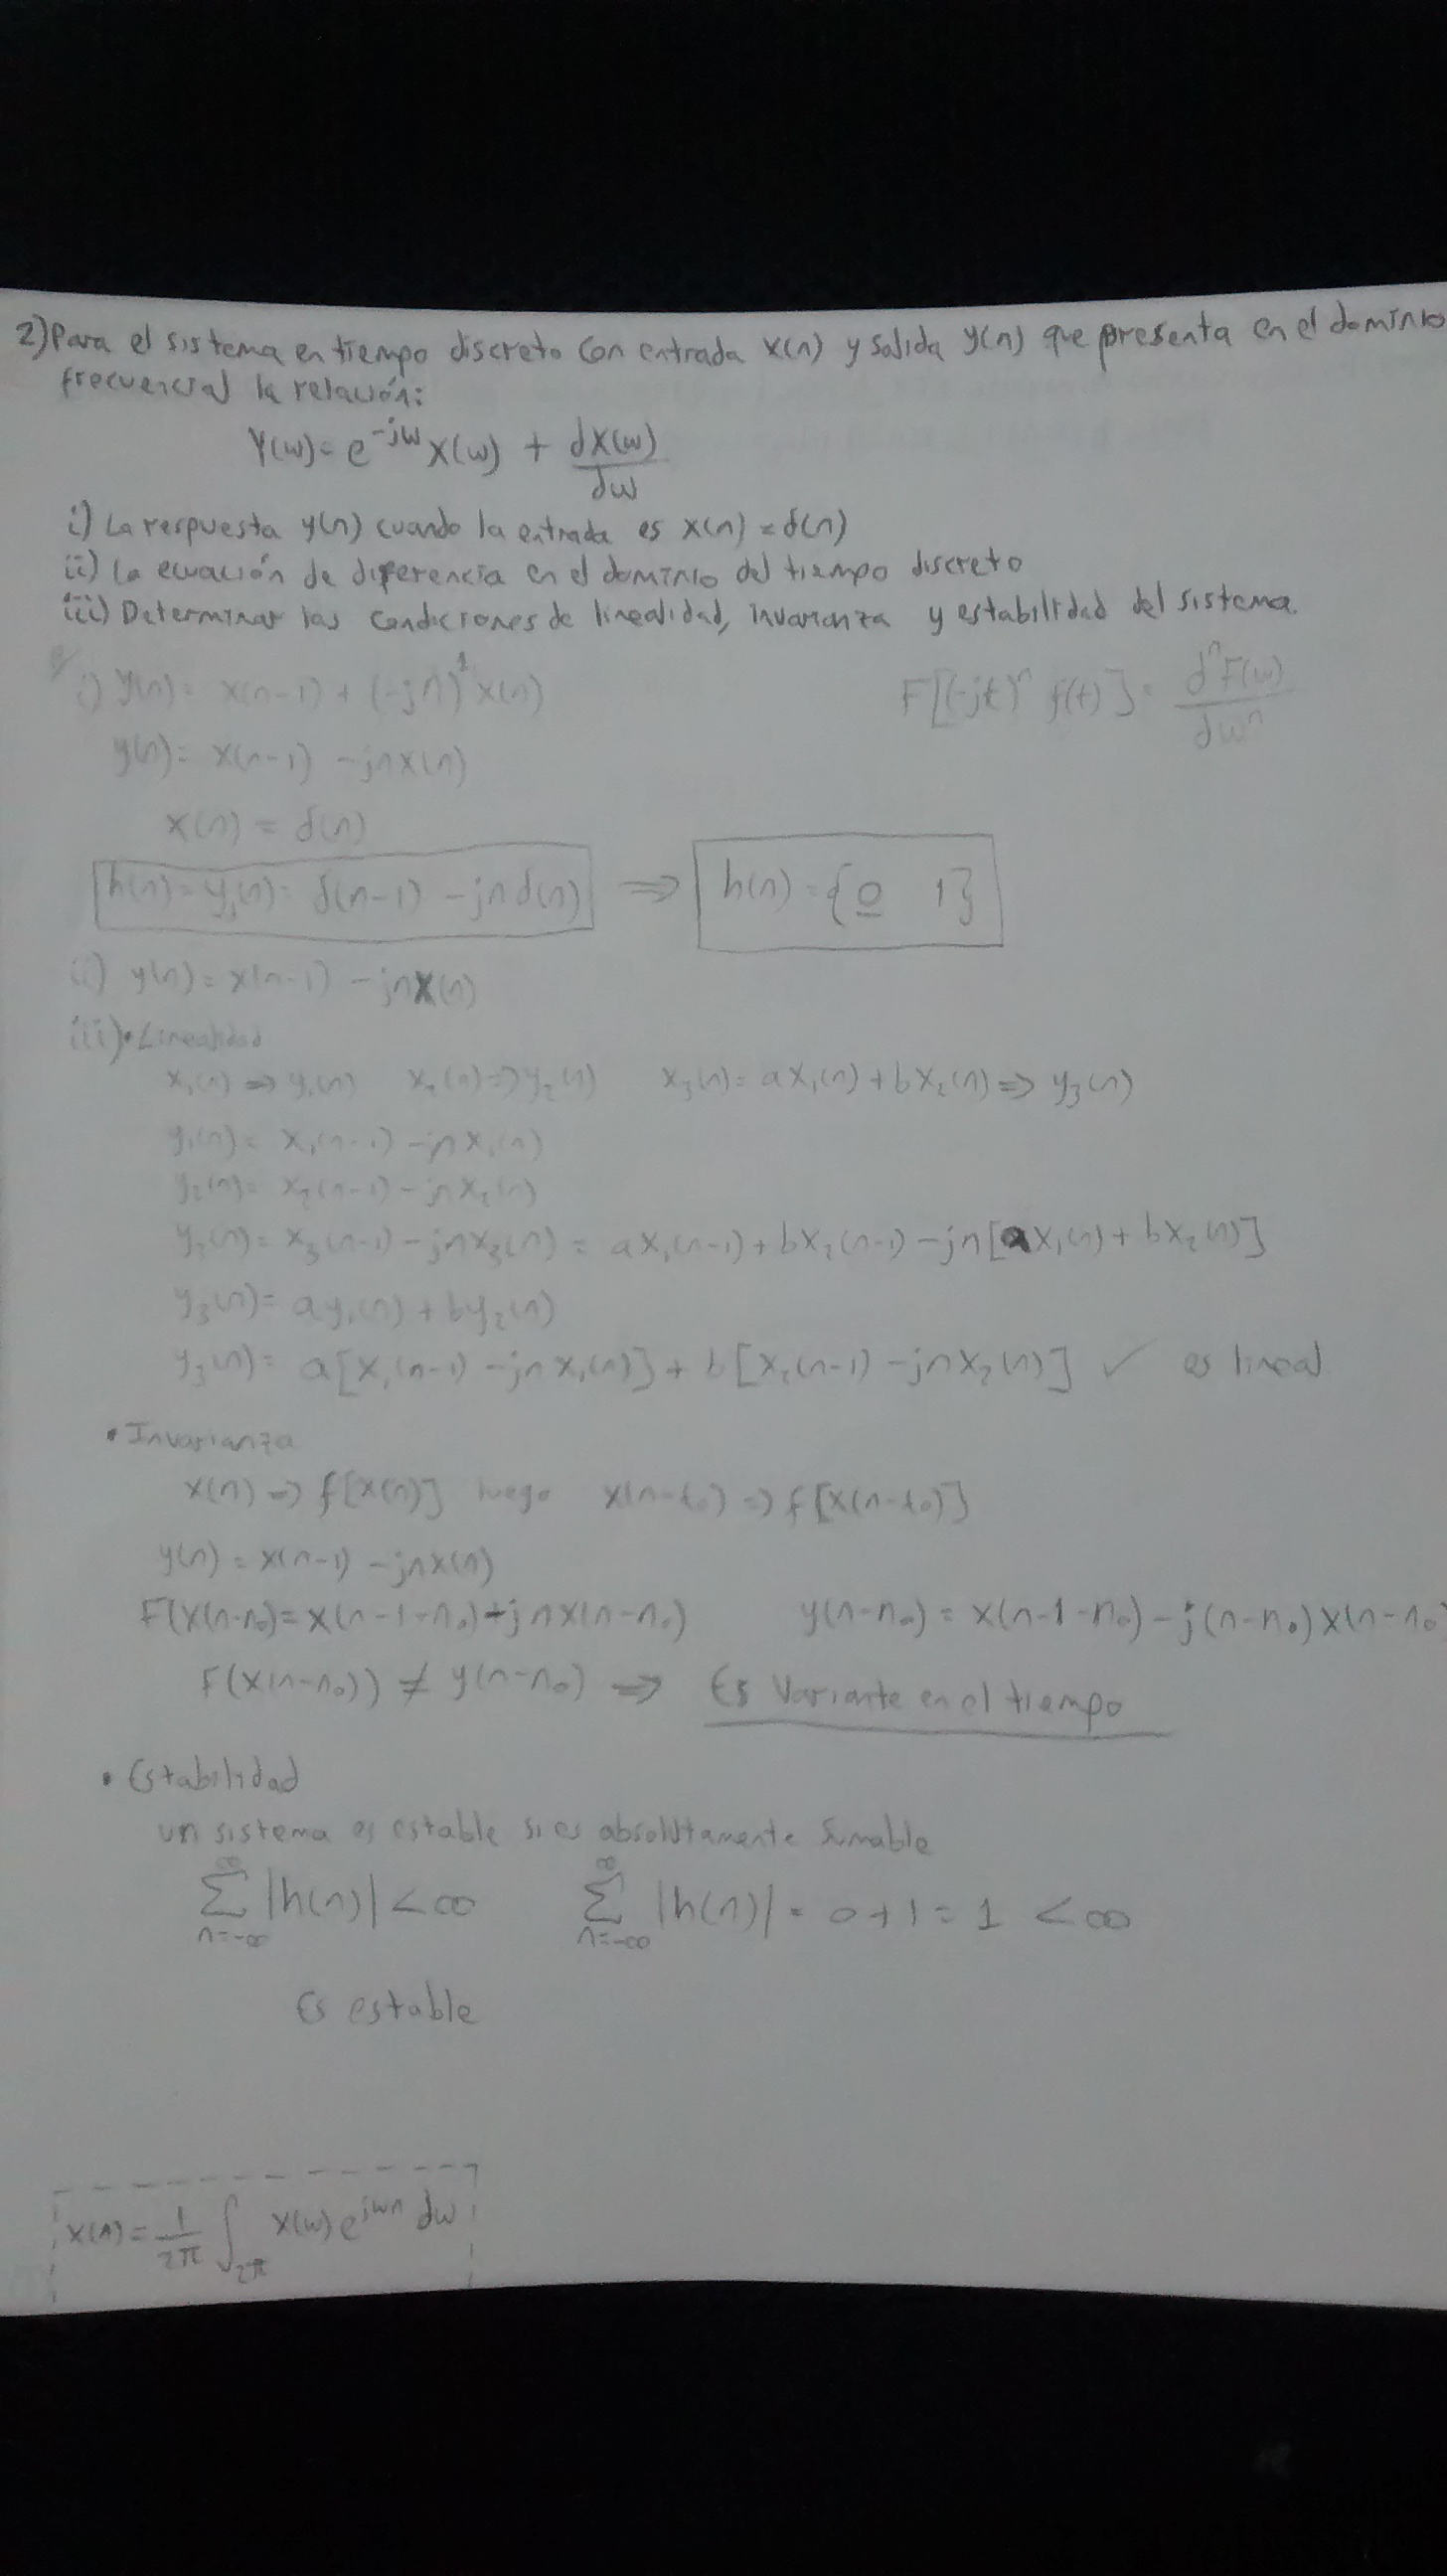 2) Para el sistema en tiempo discreto con entrada x(n) y salida y(n) que presenta en el dominio
frecuencial la relación:
Y(w) = e^{-jw} X(w) + dX(w)/dw
i) La respuesta y(n) cuando la entrada es x(n) = δ(n)
ii) La ecuación de diferencia en el dominio del tiempo discreto
iii) Determinar las condiciones de linealidad, invarianza y estabilidad del sistema.
i) y(n) = x(n-1) + (-jn)^1 x(n)    F[(-jt)^n f(t)] = d^n F(w)/dw^n
y(n) = x(n-1) - jnx(n)
x(n) = δ(n)
h(n) = y_1(n) = δ(n-1) - jnδ(n) ⇒ h(n) = {0 1}
ii) y(n) = x(n-1) - jnx(n)
iii) • Linealidad
x_1(n) ⇒ y_1(n)  x_2(n) ⇒ y_2(n)  x_3(n) = ax_1(n) + bx_2(n) ⇒ y_3(n)
y_1(n) = x_1(n-1) - jnx_1(n)
y_2(n) = x_2(n-1) - jnx_2(n)
y_3(n) = x_3(n-1) - jnx_3(n) = ax_1(n-1) + bx_2(n-1) - jn[ax_1(n) + bx_2(n)]
y_3(n) = ay_1(n) + by_2(n)
y_3(n) = a[x_1(n-1) - jnx_1(n)] + b[x_2(n-1) - jnx_2(n)] ✓ es lineal
• Invarianza
x(n) ⇒ f[x(n)] luego x(n-t_0) ⇒ f[x(n-t_0)]
y(n) = x(n-1) - jnx(n)
F(x(n-n_0) = x(n-1-n_0) - jnx(n-n_0)    y(n-n_0) = x(n-1-n_0) - j(n-n_0)x(n-n_0)
F(x(n-n_0)) ≠ y(n-n_0) ⇒ Es Variante en el tiempo
• Estabilidad
un sistema es estable si es absolutamente sumable
∑_{n=-∞}^{∞} |h(n)| < ∞    ∑_{n=-∞}^{∞} |h(n)| = 0+1 = 1 < ∞
Es estable
x(n) = 1/2π ∫_{2π} X(w) e^{jwn} dw